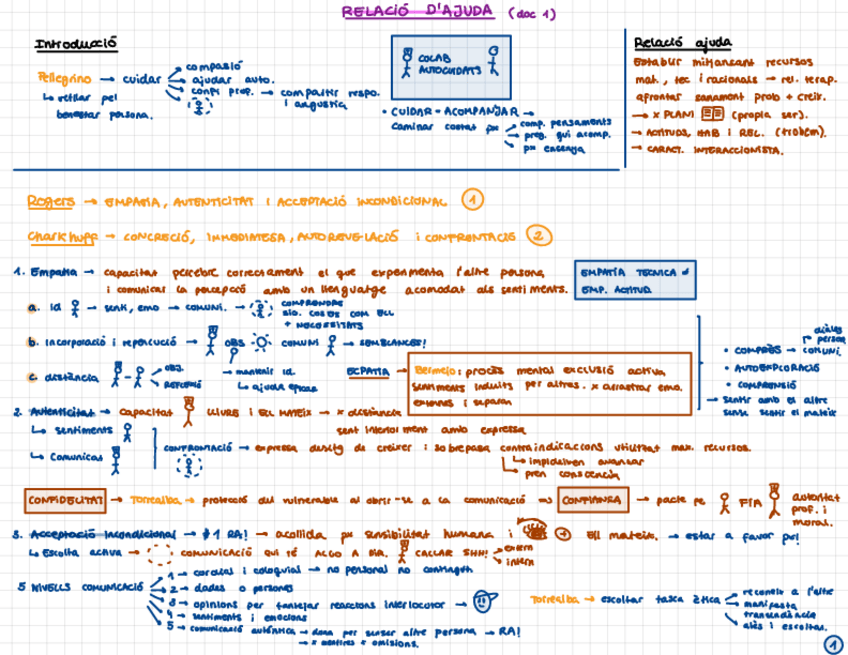 RELACIÓ D'AJUDA (doc 1)
Introducció
Pellegrino → cuidar
compasió
ajudar auto.
conf prop. → compartir respo.
i angustia
↳ vetllar pel
benestar persona.
COLAB
AUTOCUIDATS
• CUIDAR = ACOMPANYAR →
caminar costat px
comp. pensaments
preg. qui acomp.
px ensenya
Relació ajuda
Establir mitjançant recursos
mat, tec i racionals → rel. terap.
afrontar sanament prob + creix.
→ x PLANI (propia ser).
→ ACTITUDS, HAB i REL. (trobem).
→ CARACT. INTERACCIONISTA.
Rogers → EMPATIA, AUTENTICITAT I ACCEPTACIÓ INCONDICIONAL 1
Charkhuff → CONCRECIÓ, IMMEDIATESA, AUTOREVELACIÓ i CONFRONTACIÓ 2
1. Empatia → capacitat percebre correctament el que experimenta l'altre persona,
i comunicar la percepció amb un llenguatge acomodat als sentiments.
EMPATÍA TECNICA ≠
EMP. ACTITUD
a. id → senti, emo → comuni. →
COMPRENDRE
sig. COSES COM ELL
+ NECESSITATS
b. incorporació i repercució → OBS COMUNI → SEMBLANCES!
c. distància
OBJ.
REFLEXIÓ
→ mantenir id.
↳ ajuda eficaç
ECPATIA → Bermejo: procés mental exclusió activa
sentiments induïts per altres. x arrastrar emo.
externs i separan
diàleg
r persona
• COMPRÈS → comuni.
• AUTOEXPLORACIÓ
• COMPRENSIÓ
→ sentir amb el altre
sense sentir el mateix
2. Autenticitat → capacitat LLIURE I ELL MATEIX → x distància
↳ sentiments
↳ Comunicat
sent interiorment amb expressa
CONFRONTACIÓ → expressa desitg de creixer i sobrepasa contraindicacions utilitzat max. recursos.
↳ impideixen avansar
↳ pren consciència
CONFIDELITAT → Torrealba → protecció del vulnerable al obrir-se a la comunicació => CONFIANÇA → pacte FIA autoritat
prof. i
moral.
3. Acceptació Incondicional → $1 RA! → acollida px sensibilitat humana i + Ell mateix. → estar a favor px!
↳ Escolta activa → COMUNICACIÓ QUI TÉ ALGO A DIR. CALLAR SHH!
extern
intern
5 NIVELLS COMUNICACIÓ
1 → cordial i coloquial → no personal no contingth
2 → dades o persones
3 → opinions per tantejar reaccions interlocutor →
4 → sentiments i emocions
5 → comunicació autèntica → dona per sensar altre persona → RA!
→ x mentires x omisions.
Torrealba → escoltar tasca ètica
reconeix a l'altre
manifesta
transcendència
alès i escoltar.
1